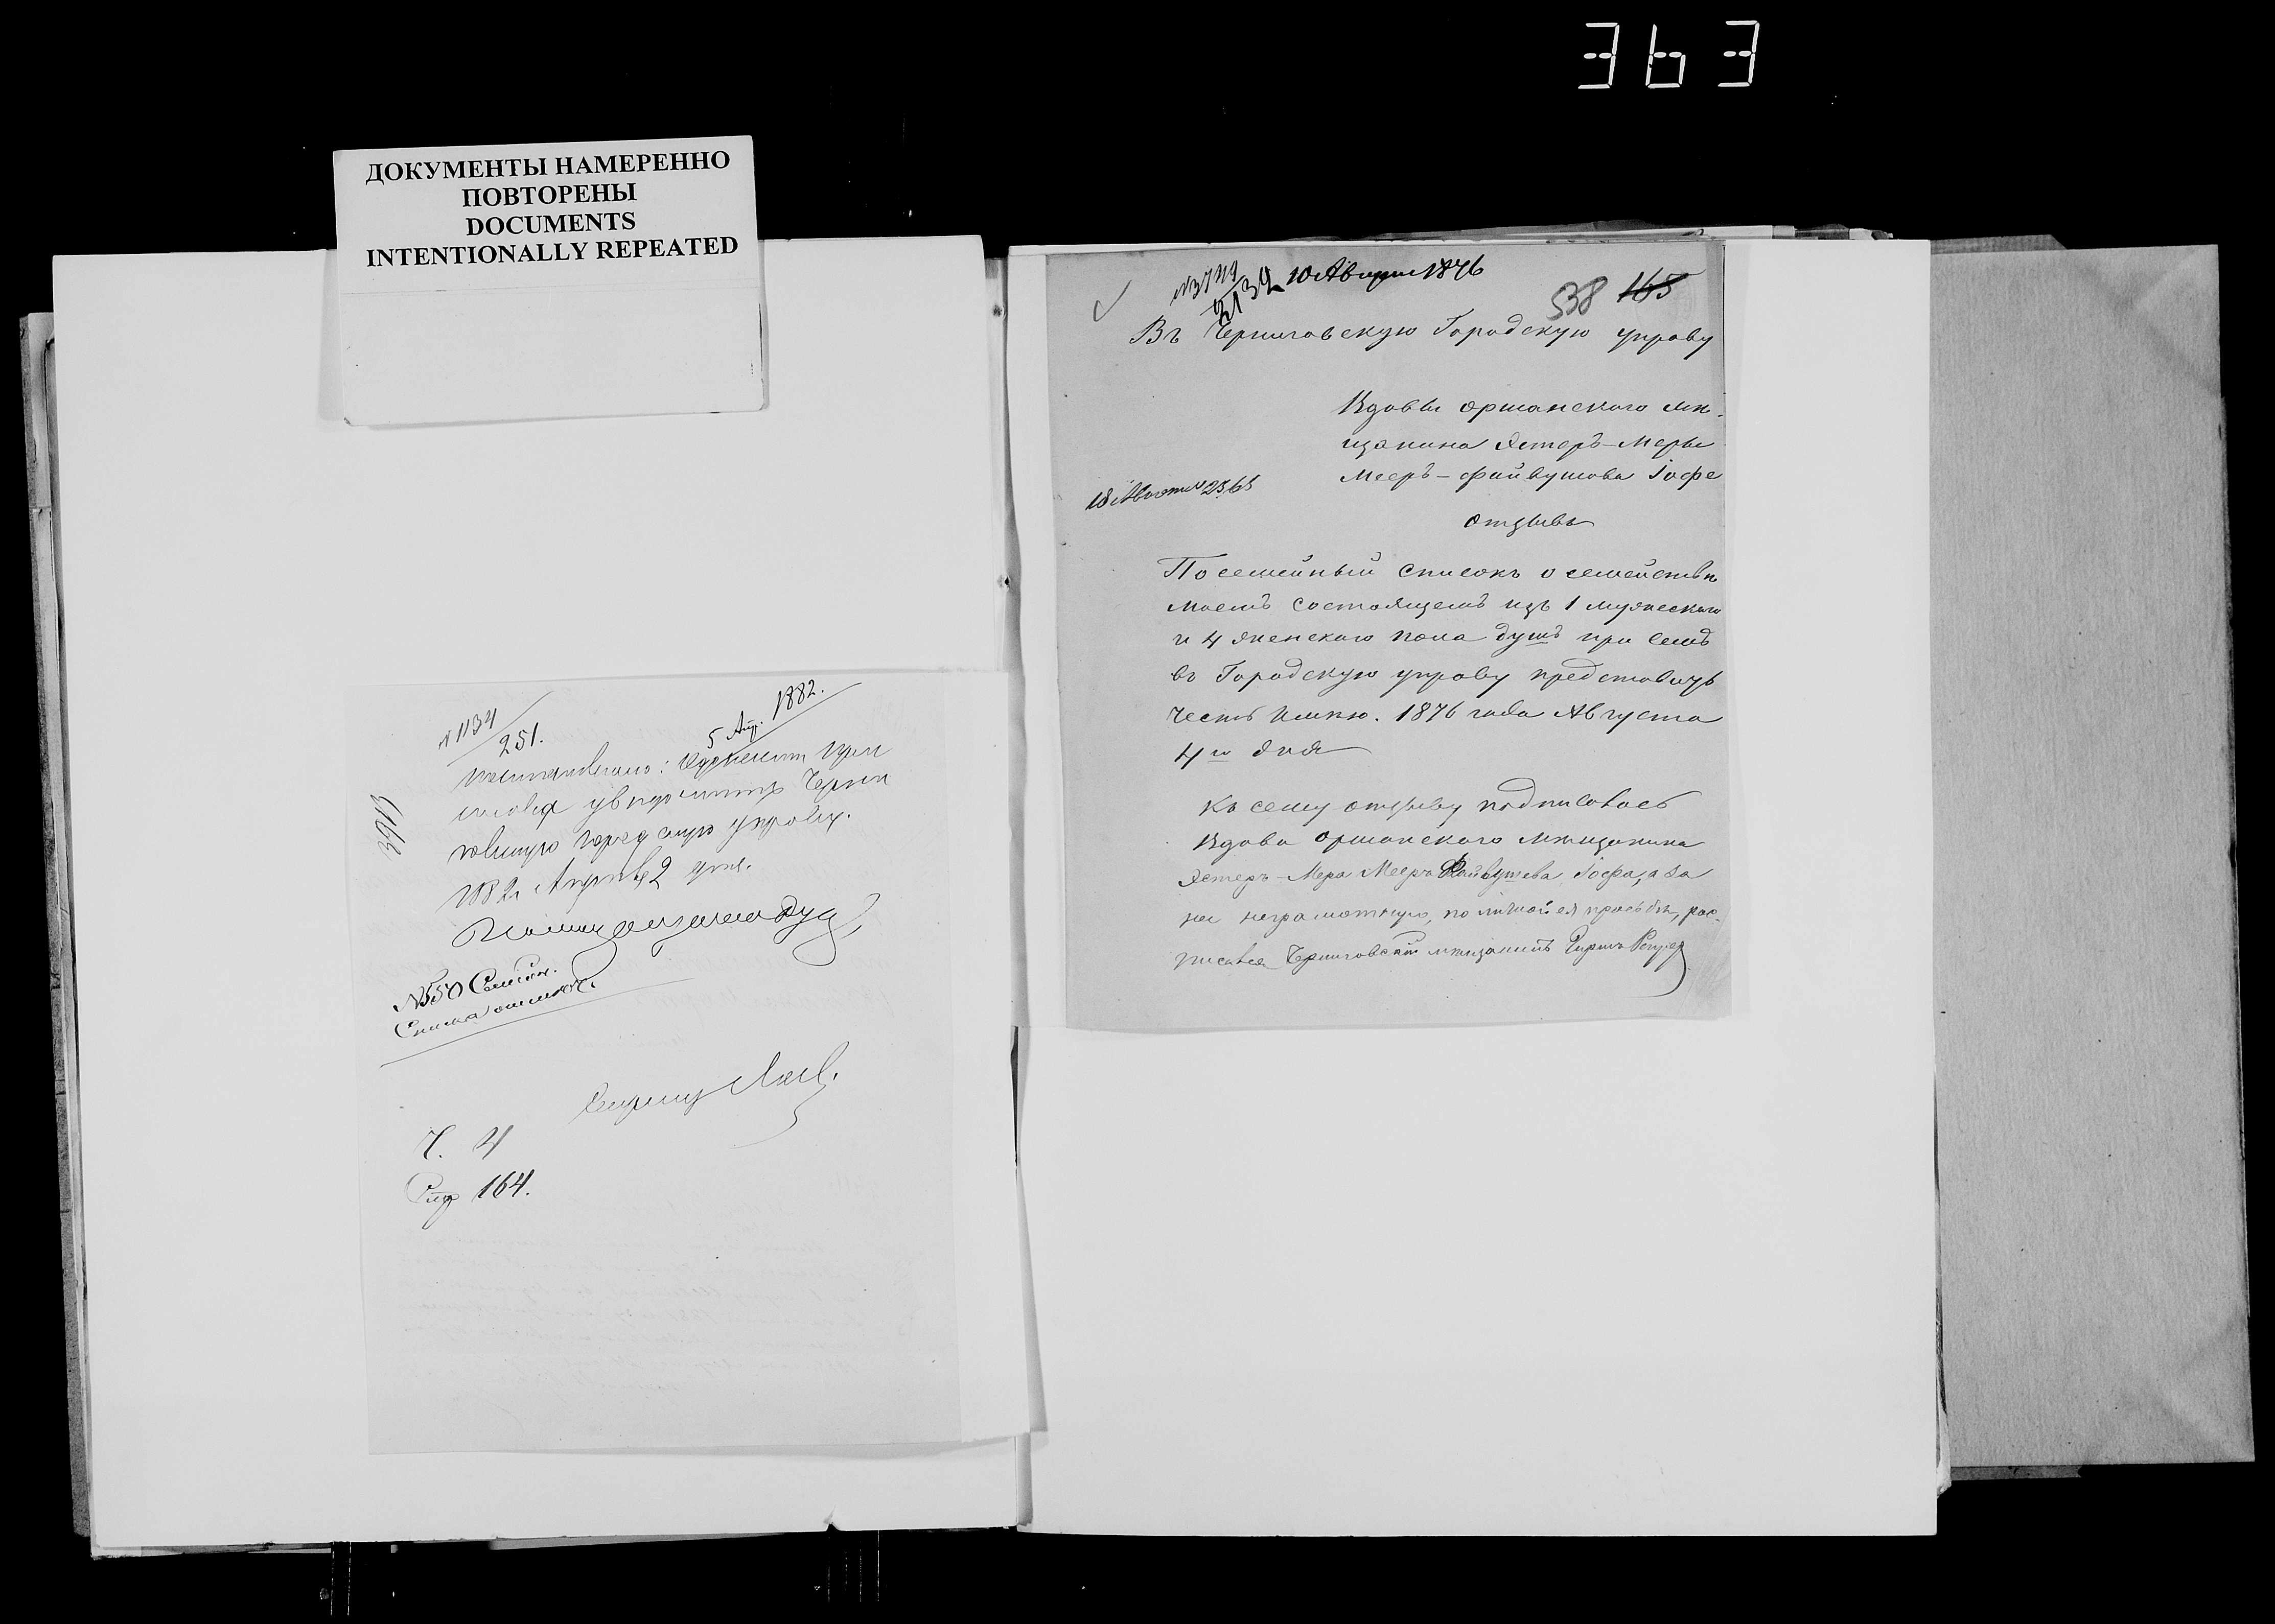 363
ДОКУМЕНТЫ НАМЕРЕННО
ПОВТОРЕНЫ
DOCUMENTS
INTENTIONALLY REPEATED
№ 1134
251.
5 Апр. 1882.
увѣдомить Черни
говскую городскую управу.
1882 г. Апрѣля 2 дня.
№ 550 Семейн.
Списка
Ч. 4
164.
10 Августа 1876
2132
538 165
Въ Черниговскую Городскую управу
Вдовы оршанского мѣ-
щанина Эстеръ-Меры
Мееръ-Файвушова Іофе
18 Августа 2365
отзывъ
Посемейный списокъ о семействѣ
моемъ состоящемъ изъ 1 мужескаго
и 4 женскаго пола душъ при семъ
въ Городскую управу представить
честь имѣю. 1876 года Августа
4го дня
Къ сему отзыву подписалась
Вдова оршанского мѣщанина
Эстеръ-Мера Мееръ Файвушева Іофа, а за
нее неграмотную, по личной ея просьбѣ, рос-
писался Черниговскій мѣщанинъ Гирша